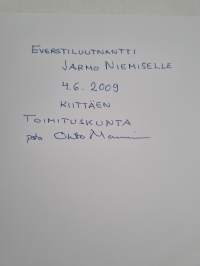 EVERSTILUUTNANTTI
JARMO NIEMISELLE
4.6. 2009
KIITTÄEN
TOIMITUSKUNTA
psta Ohto Manninen